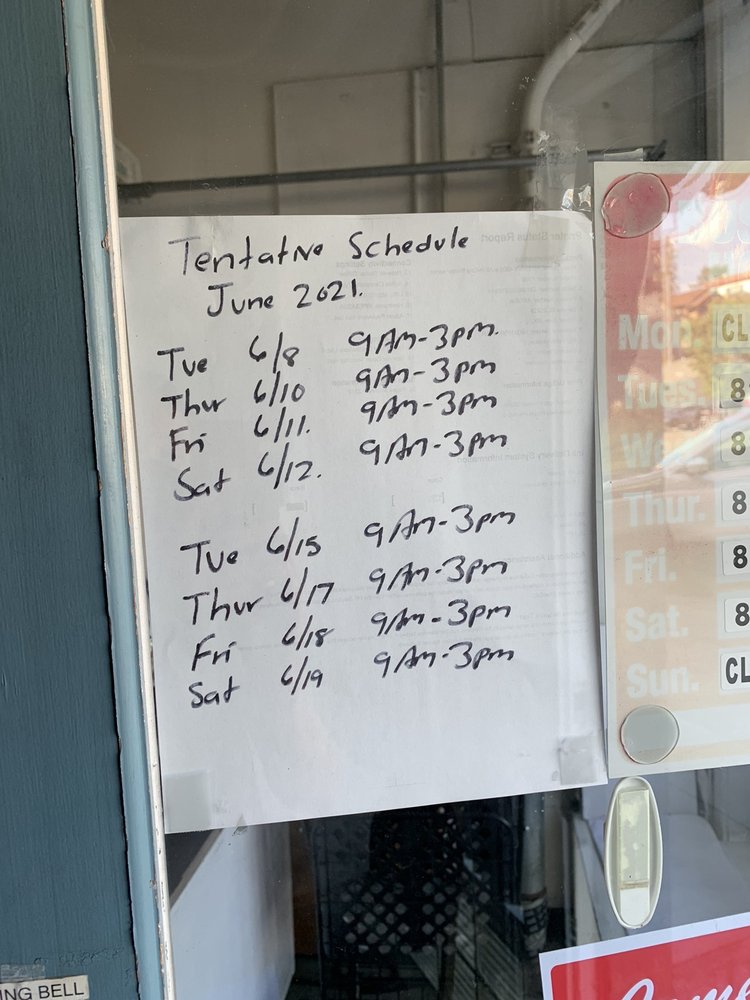 Tentative Schedule
June 2021.
Tue 6/8 9AM-3pm.
Thur 6/10 9AM-3pm
Fri 6/11. 9AM-3pm
Sat 6/12. 9AM-3pm
Tue 6/15 9AM-3pm
Thur 6/17 9AM-3pm
Fri 6/18 9AM-3pm
Sat 6/19 9AM-3pm
Mon. CL
Tues. 8
We 8
Thur. 8
Fri. 8
Sat. 8
Sun. CL
NG BELL